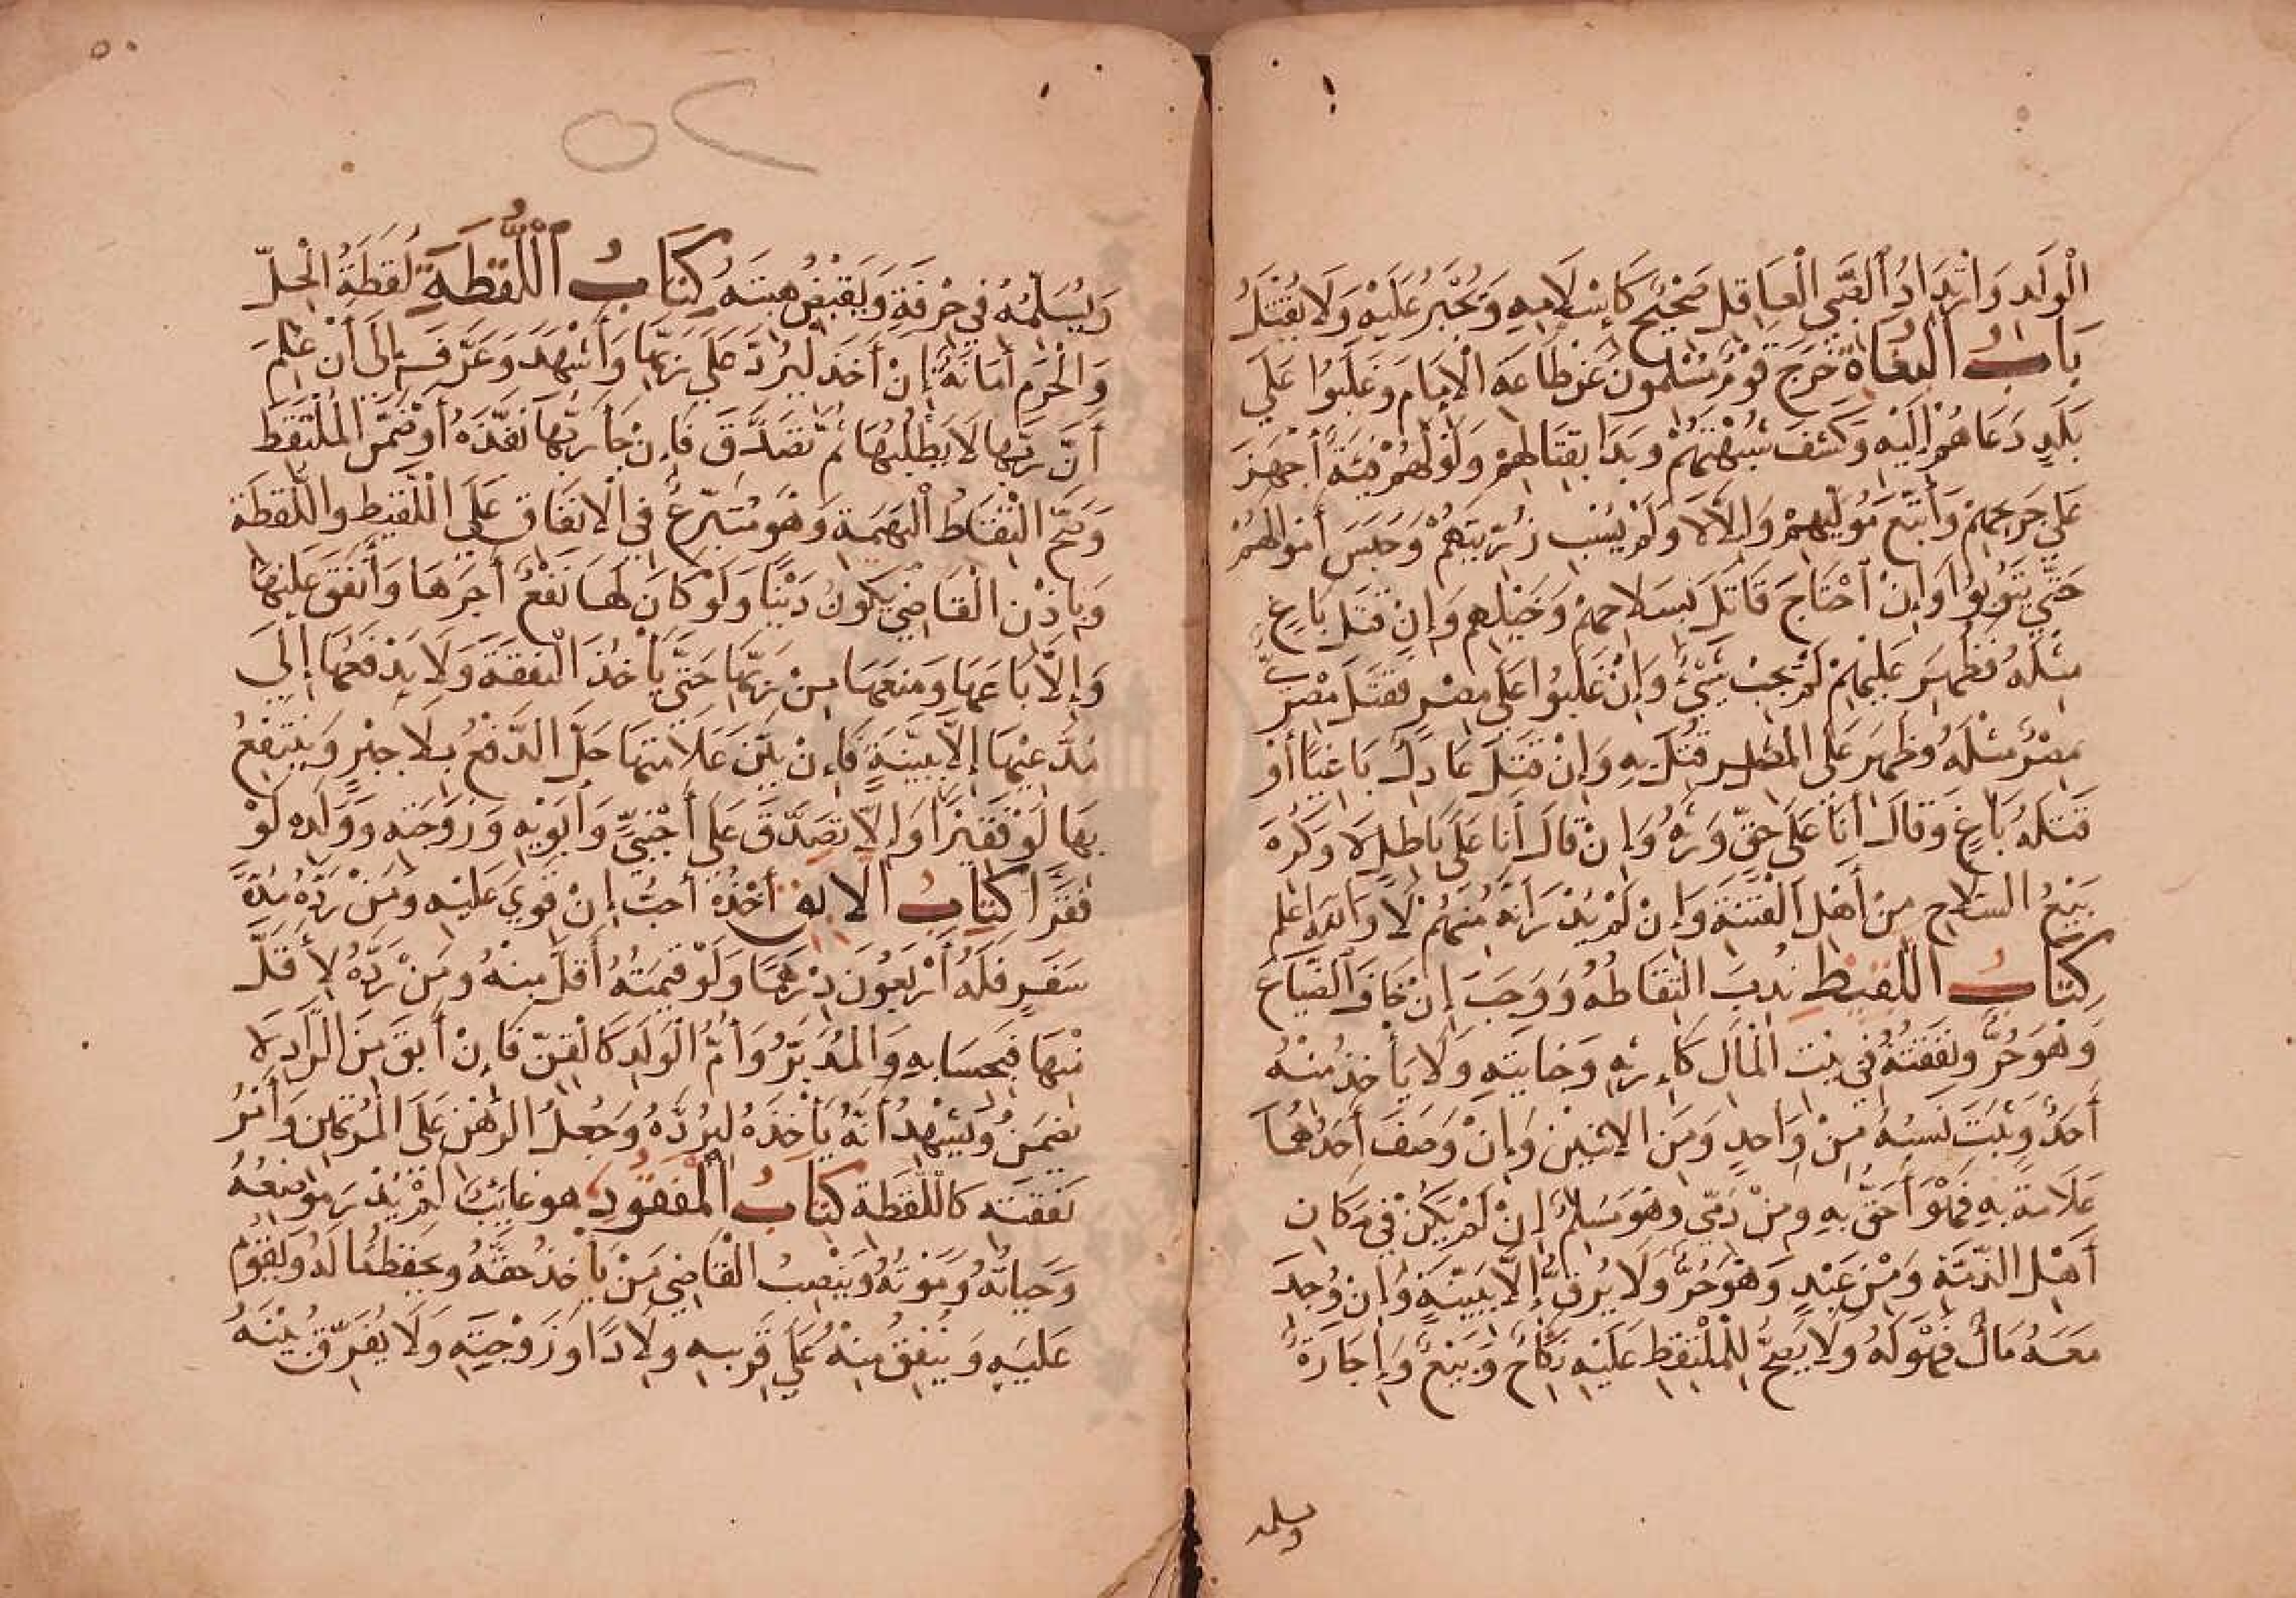 الْوَلَدِ وَارْتِدَادُ الصَّبِيِّ الْعَاقِلِ صَحِيْحٌ كَإِسْلَامِهِ وَيُجْبَرُ عَلَيْهِ وَلَا يُقْتَلُ
بَابُ الْبُغَاةِ خَرَجَ قَوْمٌ مُسْلِمُونَ عَنْ طَاعَةِ الْإِمَامِ وَغَلَبُوا عَلَى
بَلَدٍ دَعَاهُمْ إِلَيْهِ وَكَشَفَ شُبْهَتَهُمْ وَبَدَا بِقِتَالِهِمْ وَلَوْ لَهُمْ فِئَةٌ أَجْهَزَ
عَلَى جَرِيحِهِمْ وَأَتْبَعَ مُوَلِّيَهُمْ وَإِلَّا لَا وَلَمْ يَسْبِ ذُرِّيَّتَهُمْ وَحَبَسَ أَمْوَالَهُمْ
حَتَّى يَتُوْبُوْا وَإِنْ احْتَاجَ قَاتَلَ بِسَلَاحِهِمْ وَخَيْلِهِمْ وَإِنْ قَتَلَ بَاغٍ
مِثْلَهُ فَظُهِرَ عَلَيْهِمْ لَمْ يَجِبْ شَيْءٌ وَإِنْ غَلَبُوا عَلَى مِصْرٍ فَقَتَلَ مِصْرِيٌّ
مِثْلَهُ وَظُهِرَ عَلَى الْمِصْرِ قُتِلَ بِهِ وَإِنْ قَتَلَ عَادِلٌ بَاغِيًا أَوْ
قَتَلَهُ بَاغٍ وَقَالَ أَنَا عَلَى حَقٍّ وَرِثَهُ وَإِنْ قَالَ أَنَا عَلَى بَاطِلٍ لَا وَكُرِهَ
بَيْعُ السِّلَاحِ مِنْ أَهْلِ الْفِتْنَةِ وَإِنْ لَمْ يُدْرَ أَنَّهُ مِنْهُمْ لَا وَاللهُ اعلم
كِتَابُ اللَّقِيْطِ نُدِبَ الْتِقَاطُهُ وَوَجَبَ إِنْ خَافَ الضَّيَاعَ
وَهُوَ حُرٌّ وَنَفَقَتُهُ فِي بَيْتِ الْمَالِ كَإِرْثِهِ وَجِنَايَتِهِ وَلَا يَأْخُذُ مِنْهُ
أَحَدٌ وَيَثْبُتُ نَسَبُهُ مِنْ وَاحِدٍ وَمِنَ الاثنَيْنِ وَإِنْ وَصَفَ أَحَدُهُمَا
عَلَامَةً بِهِ فَهُوَ أَحَقُّ بِهِ وَمِنْ ذِمِّيٍّ وَهُوَ مُسْلِمٌ إِنْ لَمْ يَكُنْ فِي مَكَانِ
أَهْلِ الذِّمَّةِ وَمِنْ عَبْدٍ وَهُوَ حُرٌّ وَلَا يُرَقُّ إِلَّا بِبَيِّنَةٍ وَإِنْ وُجِدَ
مَعَهُ مَالٌ فَهُوَ لَهُ وَلَا يَصِحُّ لِلْمُلْتَقِطِ عَلَيْهِ نِكَاحٌ وَبَيْعٌ وَإِجَارَةٌ
ويسلمه
٥٠
٥٢
وَيُسَلِّمُهُ فِي حِرْفَةٍ وَيَقْبِضُ هِبَتَهُ كِتَابُ اللُّقَطَةِ لُقَطَةُ الْحِلِّ
وَالْحَرَمِ أَمَانَةٌ إِنْ أَخَذَ لِيَرُدَّ عَلَى رَبِّهَا وَأَشْهَدَ وَعَرَّفَ إِلَى أَنْ عَلِمَ
أَنَّ رَبَّهَا لَا يَطْلُبُهَا ثُمَّ تَصَدَّقَ فَإِنْ جَاءَ رَبُّهَا نَفَّذَهُ أَوْ ضَمَّنَ الْمُلْتَقِطَ
وَصَحَّ الْتِقَاطُ الْبَهِيمَةِ وَهُوَ مُتَبَرِّعٌ فِي الْإِنْفَاقِ عَلَى اللَّقِيْطِ وَاللُّقَطَةِ
وَبِإِذْنِ الْقَاضِي يَكُونُ دَيْنًا وَلَوْ كَانَ لَهَا نَفْعٌ أَجَرَهَا وَأَنْفَقَ عَلَيْهَا
وَإِلَّا بَاعَهَا وَمَنَعَهَا مِنْ رَبِّهَا حَتَّى يَأْخُذَ النَّفَقَةَ وَلَا يَدْفَعُهَا إِلَى
مُدَّعِيْهَا إِلَّا بِبَيِّنَةٍ فَإِنْ بَيَّنَ عَلَامَتَهَا حَلَّ الدَّفْعُ بِلَا جَبْرٍ وَيَنْتَفِعُ
بِهَا لَوْ فَقِيْرًا وَإِلَّا تَصَدَّقَ عَلَى أَجْنَبِيٍّ وَأَبَوَيْهِ وَزَوْجَتِهِ وَوَلَدِهِ لَوْ
فُقَرَا كِتَابُ الْآبِقِ أَخْذُهُ أَحَبُّ إِنْ قَوِيَ عَلَيْهِ وَمَنْ رَدَّهُ مُدَّةَ
سَفَرٍ فَلَهُ أَرْبَعُوْنَ دِرْهَمًا وَلَوْ قِيمَتُهُ أَقَلَّ مِنْهُ وَمَنْ رَدَّهُ لِأَقَلَّ
مِنْهَا فَبِحِسَابِهِ وَالْمُدَبَّرُ وَأُمُّ الْوَلَدِ كَالْقِنِّ فَإِنْ أَبَقَ مِنَ الرَّادِّ لَا
يَضْمَنُ وَيُشْهِدُ أَنَّهُ يَأْخُذُهُ لِيَرُدَّهُ وَجُعْلُ الرَّهْنِ عَلَى الْمُرْتَهِنِ وَأَمْرُ
نَفَقَتِهِ كَاللُّقَطَةِ كِتَابُ الْمَفْقُوْدِ هُوَ غَائِبٌ لَمْ يُدْرَ مَوْضِعُهُ
وَحَيَاتُهُ وَمَوْتُهُ وَيَنْصِبُ الْقَاضِي مَنْ يَأْخُذُ حَقَّهُ وَيَحْفَظُ مَالَهُ وَيَقُوْمُ
عَلَيْهِ وَيُنْفِقُ مِنْهُ عَلَى قَرِيبِهِ وِلَادًا وَزَوْجَتِهِ وَلَا يُفَرَّقُ بَيْنَهُ